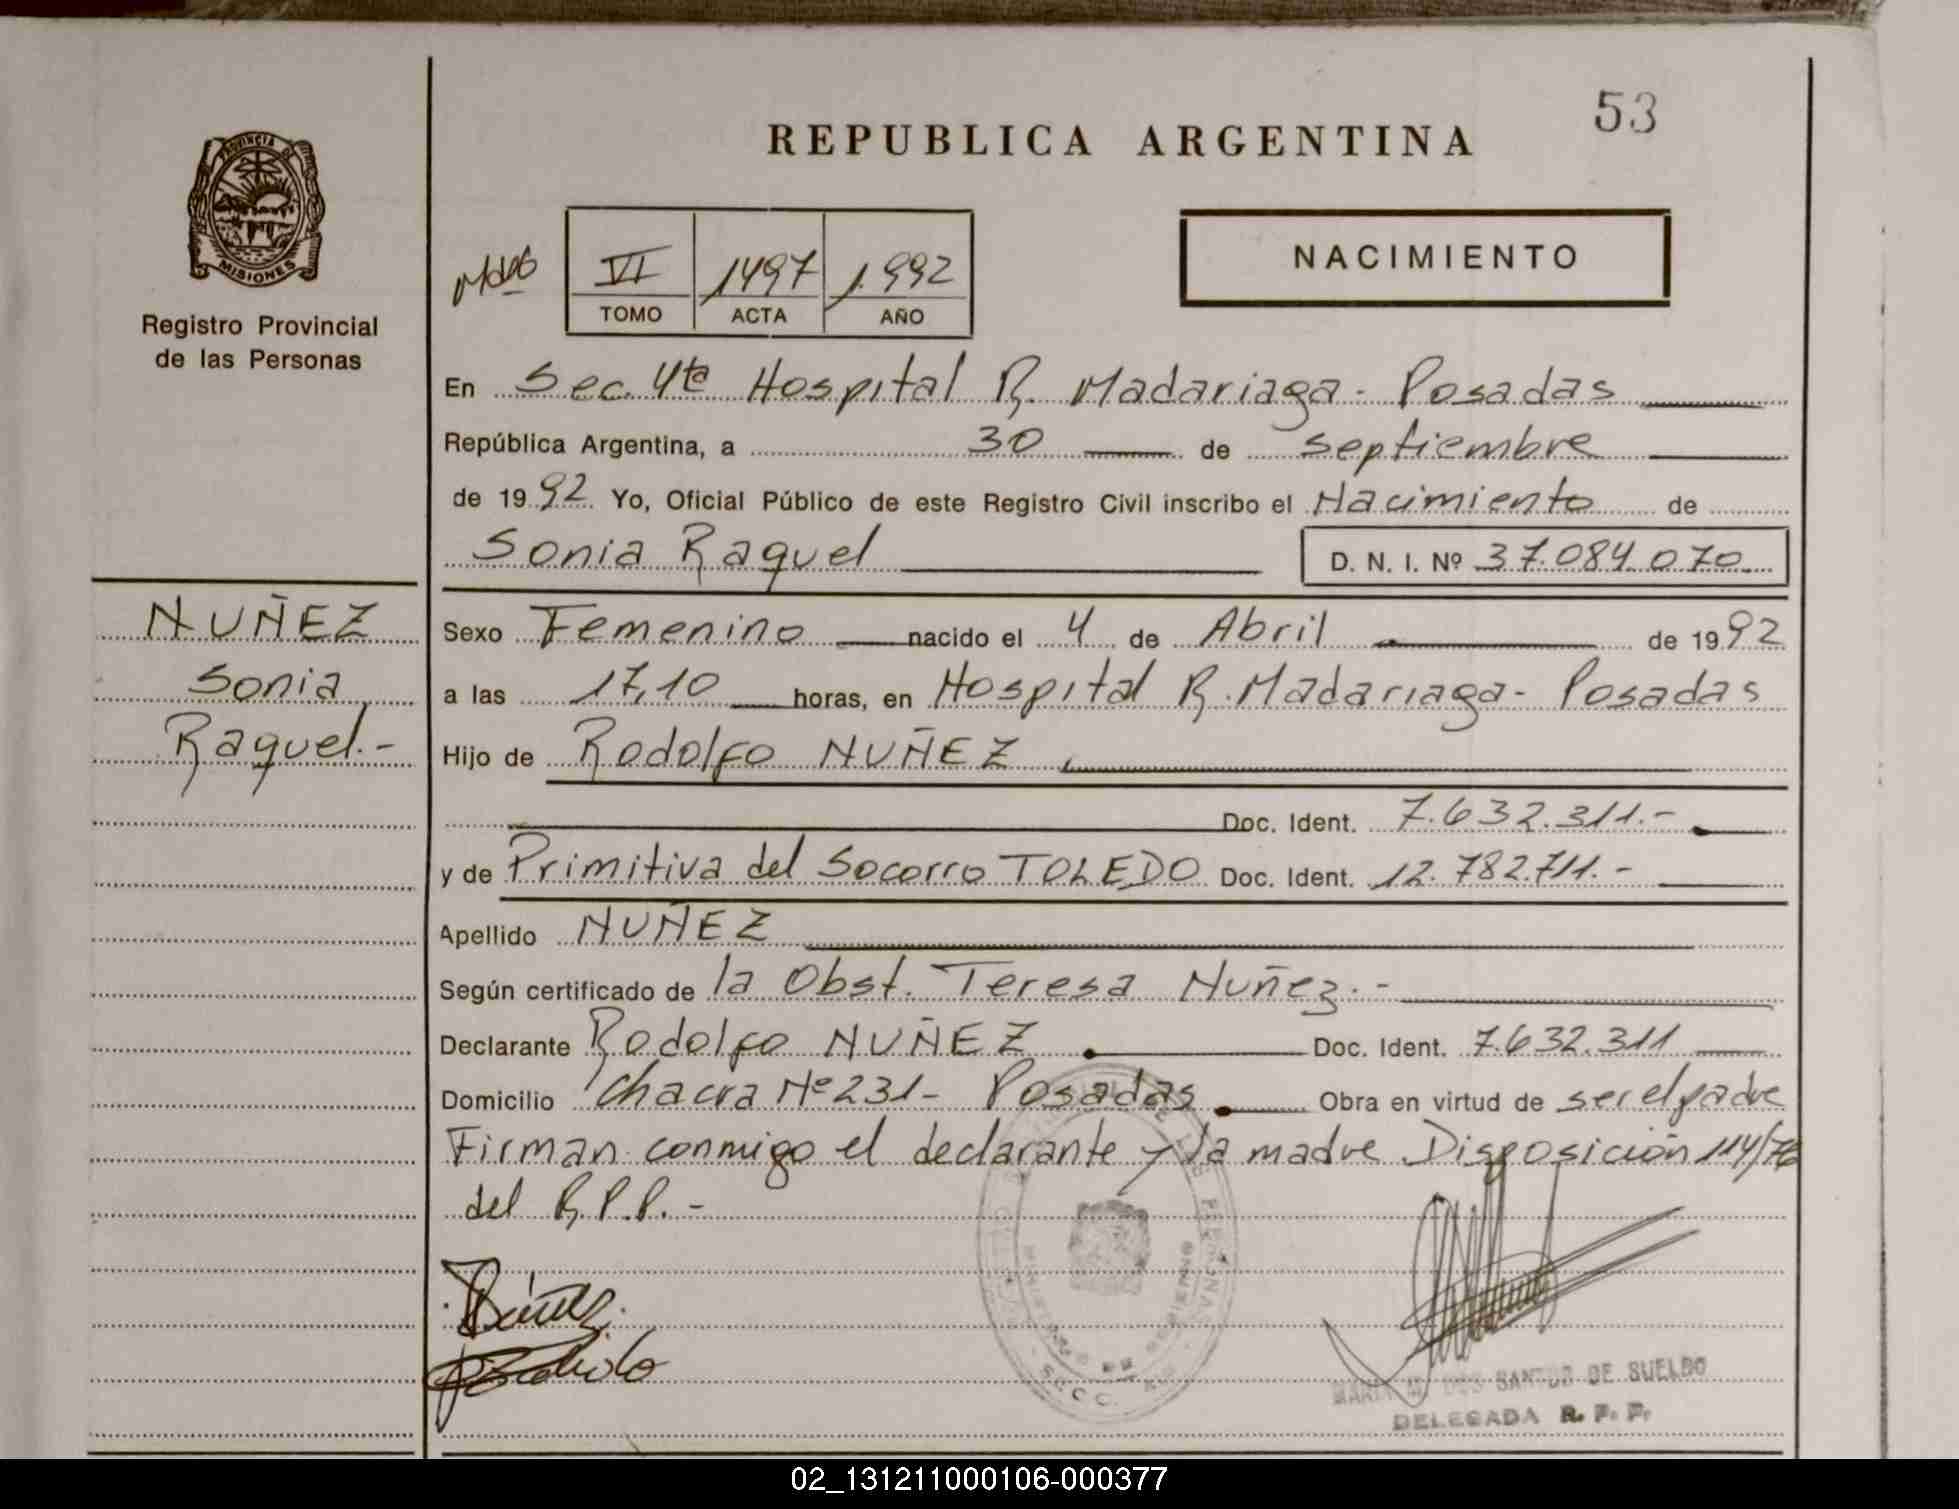 53
REPUBLICA ARGENTINA
PROVINCIA DE
MISIONES
Registro Provincial
de las Personas
NACIMIENTO
VI 1497 1.992
TOMO ACTA AÑO
En Sec. 4ta Hospital R. Madariaga - Posadas
República Argentina, a 30 de septiembre
de 1992 Yo, Oficial Público de este Registro Civil inscribo el Nacimiento de
Sonia Raquel D. N. I. Nº 37.084.070
NUÑEZ
Sonia
Raquel.-
Sexo Femenino nacido el 4 de Abril de 1992
a las 17,10 horas, en Hospital R. Madariaga - Posadas
Hijo de Rodolfo NUÑEZ
Doc. Ident. 7.632.311.-
y de Primitiva del Socorro TOLEDO Doc. Ident. 12.782.711.-
Apellido NUÑEZ
Según certificado de la Obst. Teresa Nuñez.-
Declarante Rodolfo NUÑEZ Doc. Ident. 7.632.311
Domicilio Chacra Nº 231- Posadas. Obra en virtud de ser el padre
Firman conmigo el declarante y la madre Disposición 114/76
del R.P.P.-
DOS SANTOS DE SUELDO
DELEGADA R. P. P.
02_131211000106-000377